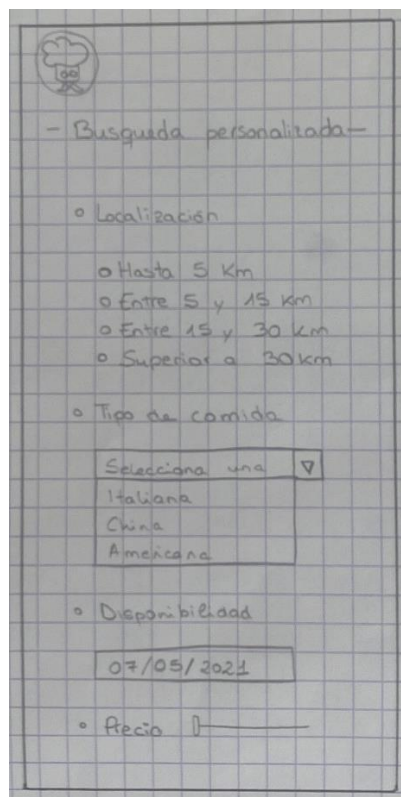 - Busqueda personalizada -
Localización
Hasta 5 Km
Entre 5 y 15 Km
Entre 15 y 30 Km
Superior a 30 km
Tipo de comida
Selecciona una
Italiana
China
Americana
Disponibilidad
07/05/2021
Precio